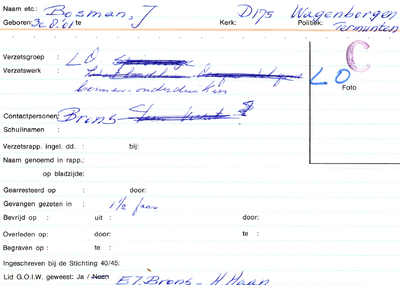 Naam etc.: Bosman, J D175 Wagenborgen
Geboren: 30.8.01 te Kerk: Politiek: Termunten
Verzetsgroep : L O
Verzetswerk :
L O
bonnen-onderduiken
Foto
Contactpersonen: Brons
Schuilnamen :
Verzetsrapp. ingel. dd. : bij:
Naam genoemd in rapp.:
op bladzijde:
Gearresteerd op : door:
Gevangen gezeten in : 1½ jaar
Bevrijd op : uit : door:
Overleden op: door: te :
Begraven op : te :
Ingeschreven bij de Stichting 40/45:
Lid G.O.I.W. geweest: Ja / Neen E.J. Brons - H. Haan